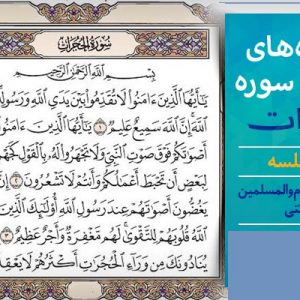 سُورَةُ الْحُجُرَاتِ
بِسْمِ اللَّهِ الرَّحْمَٰنِ الرَّحِيمِ
يَا أَيُّهَا الَّذِينَ ءَامَنُوا لَا تُقَدِّمُوا بَيْنَ يَدَيِ اللَّهِ وَرَسُولِهِ
اللَّهَ إِنَّ اللَّهَ سَمِيعٌ عَلِيمٌ ١ يَا أَيُّهَا الَّذِينَ ءَامَنُوا
أَصْوَاتَكُمْ فَوْقَ صَوْتِ النَّبِيِّ وَلَا تَجْهَرُوا لَهُ بِالْقَوْلِ كَجَهْرِ
لِبَعْضٍ أَنْ تَحْبَطَ أَعْمَالُكُمْ وَأَنْتُمْ لَا تَشْعُرُونَ ٢ إِنَّ
يَغُضُّونَ أَصْوَاتَهُمْ عِنْدَ رَسُولِ اللَّهِ أُولَٰئِكَ الَّذِينَ
اللَّهُ قُلُوبَهُمْ لِلتَّقْوَىٰ لَهُمْ مَغْفِرَةٌ وَأَجْرٌ عَظِيمٌ ٣
يُنَادُونَكَ مِنْ وَرَاءِ الْحُجُرَاتِ أَكْثَرُهُمْ لَا يَعْقِلُ
ه‌های
سوره
ات
لسه
م‌والمسلمین